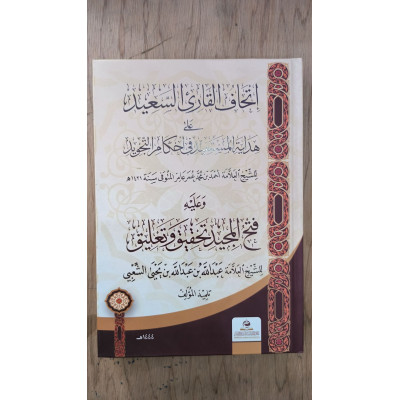 إتحاف القارئ السعيد
على
هداية المستفيد في أحكام التجويد
للشيخ العلامة أحمد بن محمد بن عمر عامر المتوفى سنة ١٤٢١ه
وعليه
فتح المجيد تحقيق وتعليق
للشيخ العلامة عبدالله بن عبدالله بن يحيى الشعبي
تلميذ المؤلف
١٤٤٤هـ